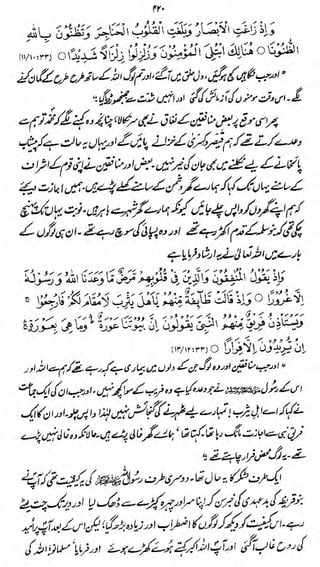 ۴۲۰
وَاِذْ زَاغَتِ الْاَبْصَارُ وَبَلَغَتِ الْقُلُوْبُ الْحَنَاجِرَ وَتَظُنُّوْنَ بِاللّٰهِ
الظُّنُوْنَا ۝ هُنَالِكَ ابْتُلِيَ الْمُؤْمِنُوْنَ وَزُلْزِلُوْا زِلْزَالًا شَدِيْدًا ۝ (۳۳: ۱۰/۱۱)
”اور جب نگاہیں کج ہو گئیں، دل حلق میں آ گئے، اور تم لوگ اللہ کے ساتھ طرح طرح کے گمان کرنے
لگے۔ اس وقت مومنوں کی آزمائش کی گئی اور انہیں شدت سے جھنجھوڑ دیا گیا۔“
پھر اسی موقع پر بعض منافقین کے نفاق نے بھی سر نکالا، چنانچہ وہ کہنے لگے کہ محمد تو ہم سے
وعدے کرتے تھے کہ ہم قیصر و کسریٰ کے خزانے پائیں گے اور یہاں یہ حالت ہے کہ پیشاب
پائخانے کے لیے نکلنے میں بھی جان کی خیر نہیں۔ بعض اور منافقین نے اپنی قوم کے اشراف
کے سامنے یہاں تک کہا کہ ہمارے گھر دشمن کے سامنے کھلے پڑے ہیں، ہمیں اجازت دیجئے
کہ ہم اپنے گھروں کو واپس چلے جائیں کیونکہ ہمارے گھر شہر سے باہر ہیں۔ نوبت یہاں تک پہنچ
چکی تھی کہ بنو سلمہ کے قدم اکھڑ رہے تھے اور وہ پسپائی کی سوچ رہے تھے۔ ان ہی لوگوں کے
بارے میں اللہ تعالیٰ نے یہ ارشاد فرمایا ہے
وَاِذْ يَقُوْلُ الْمُنٰفِقُوْنَ وَالَّذِيْنَ فِيْ قُلُوْبِهِمْ مَّرَضٌ مَّا وَعَدَنَا اللّٰهُ وَرَسُوْلُهٗ
اِلَّا غُرُوْرًا ۝ وَاِذْ قَالَتْ طَّآئِفَةٌ مِّنْهُمْ يٰٓاَهْلَ يَثْرِبَ لَا مُقَامَ لَكُمْ فَارْجِعُوْا ۚ
وَيَسْتَاْذِنُ فَرِيْقٌ مِّنْهُمُ النَّبِيَّ يَقُوْلُوْنَ اِنَّ بُيُوْتَنَا عَوْرَةٌ ۛ وَمَا هِيَ بِعَوْرَةٍ ۛ
اِنْ يُّرِيْدُوْنَ اِلَّا فِرَارًا ۝ (۳۳: ۱۲/۱۳)
”اور جب منافقین اور وہ لوگ جن کے دلوں میں بیماری ہے کہہ رہے تھے کہ ہم سے اللہ اور
اس کے رسول ﷺ نے جو وعدہ کیا ہے وہ فریب کے سوا کچھ نہیں۔ اور جب ان کی ایک جماعت
نے کہا کہ اے اہل یثرب! تمہارے لیے ٹھہرنے کی گنجائش نہیں لہٰذا واپس چلو، اور ان کا ایک
فریق نبی سے اجازت مانگ رہا تھا۔ کہتا تھا ’ہمارے گھر خالی پڑے ہیں‘ حالانکہ وہ خالی نہیں پڑے
تھے۔ یہ لوگ محض فرار چاہتے تھے۔“
ایک طرف لشکر کا یہ حال تھا۔ دوسری طرف رسول اللہ ﷺ کی یہ کیفیت تھی کہ آپ نے
بنو قریظہ کی بدعہدی کی خبر سن کر اپنا سر اور چہرہ کپڑے سے ڈھک لیا اور دیر تک چت لیٹے
رہے۔ اس کیفیت کو دیکھ کر لوگوں کا اضطراب اور زیادہ بڑھ گیا، لیکن اس کے بعد آپ پر اُمید
کی روح غالب آ گئی اور آپ اللہ اکبر کہتے ہوئے کھڑے ہوئے اور فرمایا ’مسلمانو! اللہ کی